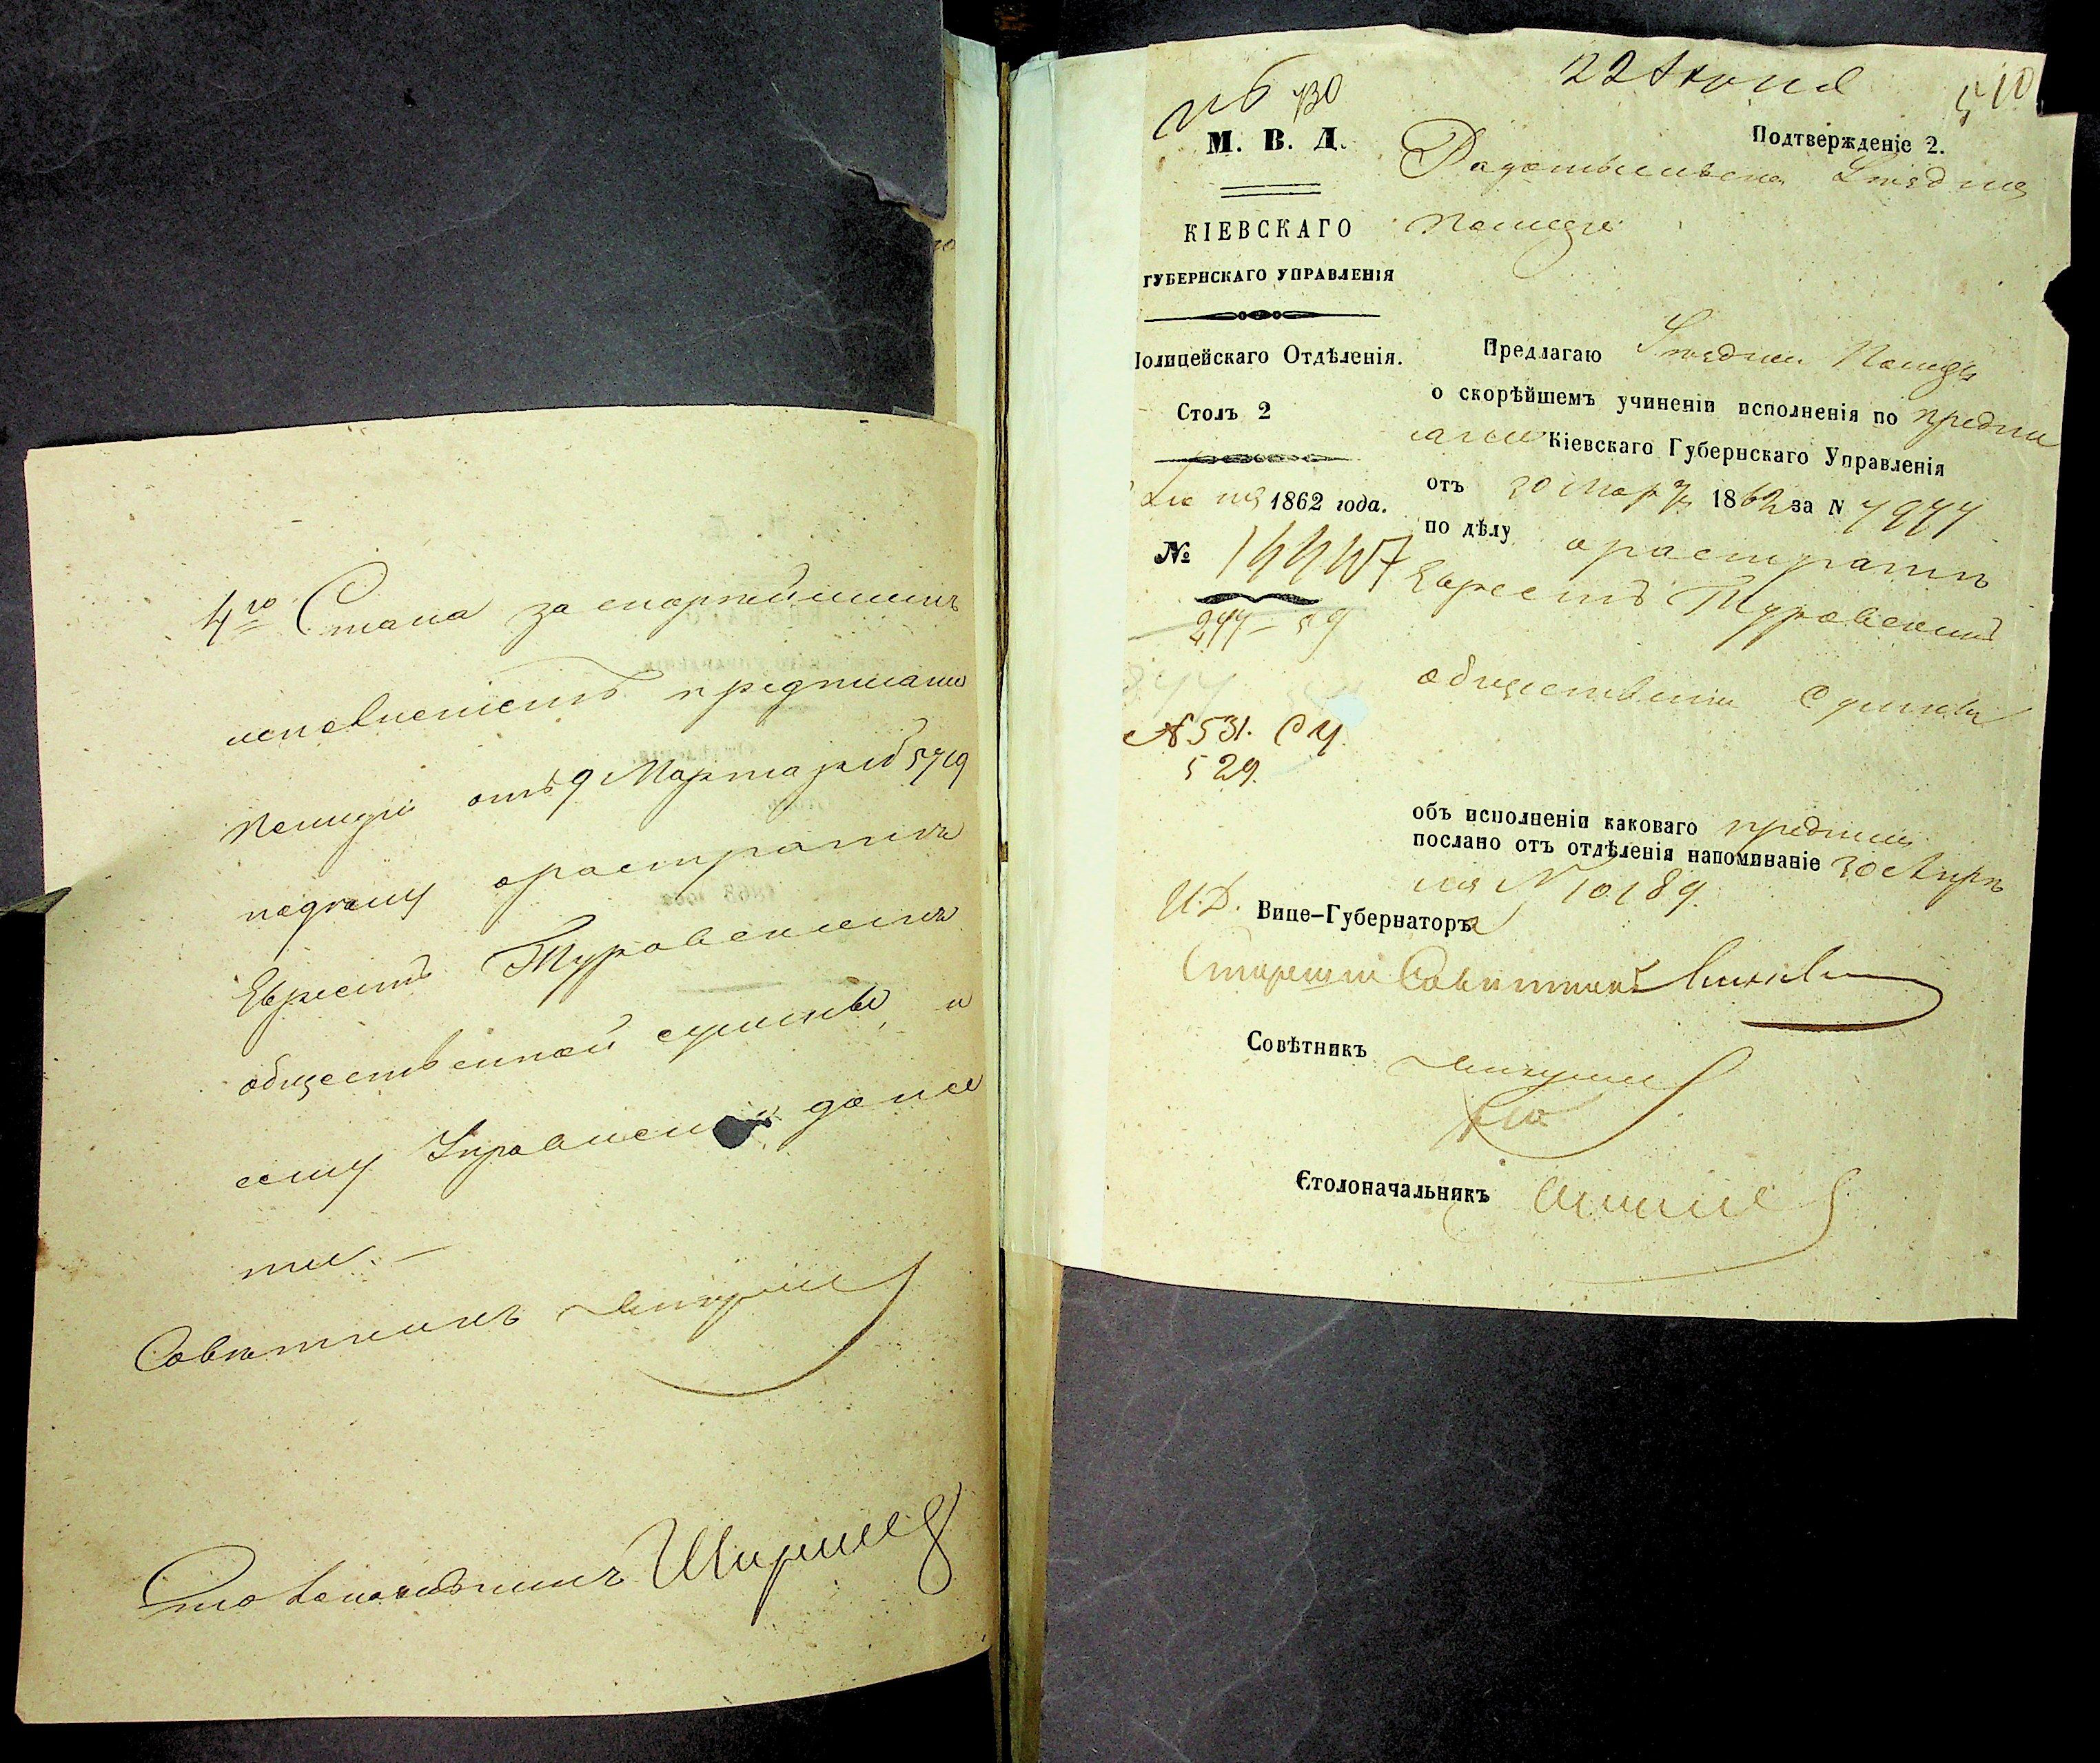 4го Стана за скорѣйшимъ
исполненіемъ предписанія
Полиціи отъ 9 Марта № 5719
подѣлу о растратѣ
Евреемъ Туровскимъ
общественной суммы, и
сему Управленію доне
сти. —
Совѣтникъ
Столоначальникъ
22 Іюня
510
130
Подтвержденіе 2.
М. В. Д.
Радомысльская Уѣздная
Полиція
КІЕВСКАГО
ГУБЕРНСКАГО УПРАВЛЕНІЯ
Полицейскаго Отдѣленія.
Столъ 2
1862 года.
№
244 – 59
№ 531.
529.
Предлагаю Уѣздной Полиціи
о скорѣйшемъ учиненіи исполненія по предпи
санію Кіевскаго Губернскаго Управленія
отъ 30 Марта 1862 за N 7977
по дѣлу о растратѣ
Евреемъ Туровскимъ
общественной суммы
объ исполненіи каковаго предпис.
послано отъ отдѣленія напоминаніе 30 Апрѣ
ля N 10189.
И. Д. Вице-Губернатора
Старшій Совѣтникъ
Совѣтникъ
Столоначальникъ